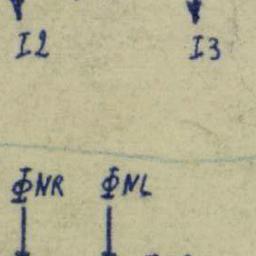 I2 I3
ΦNR ΦNL